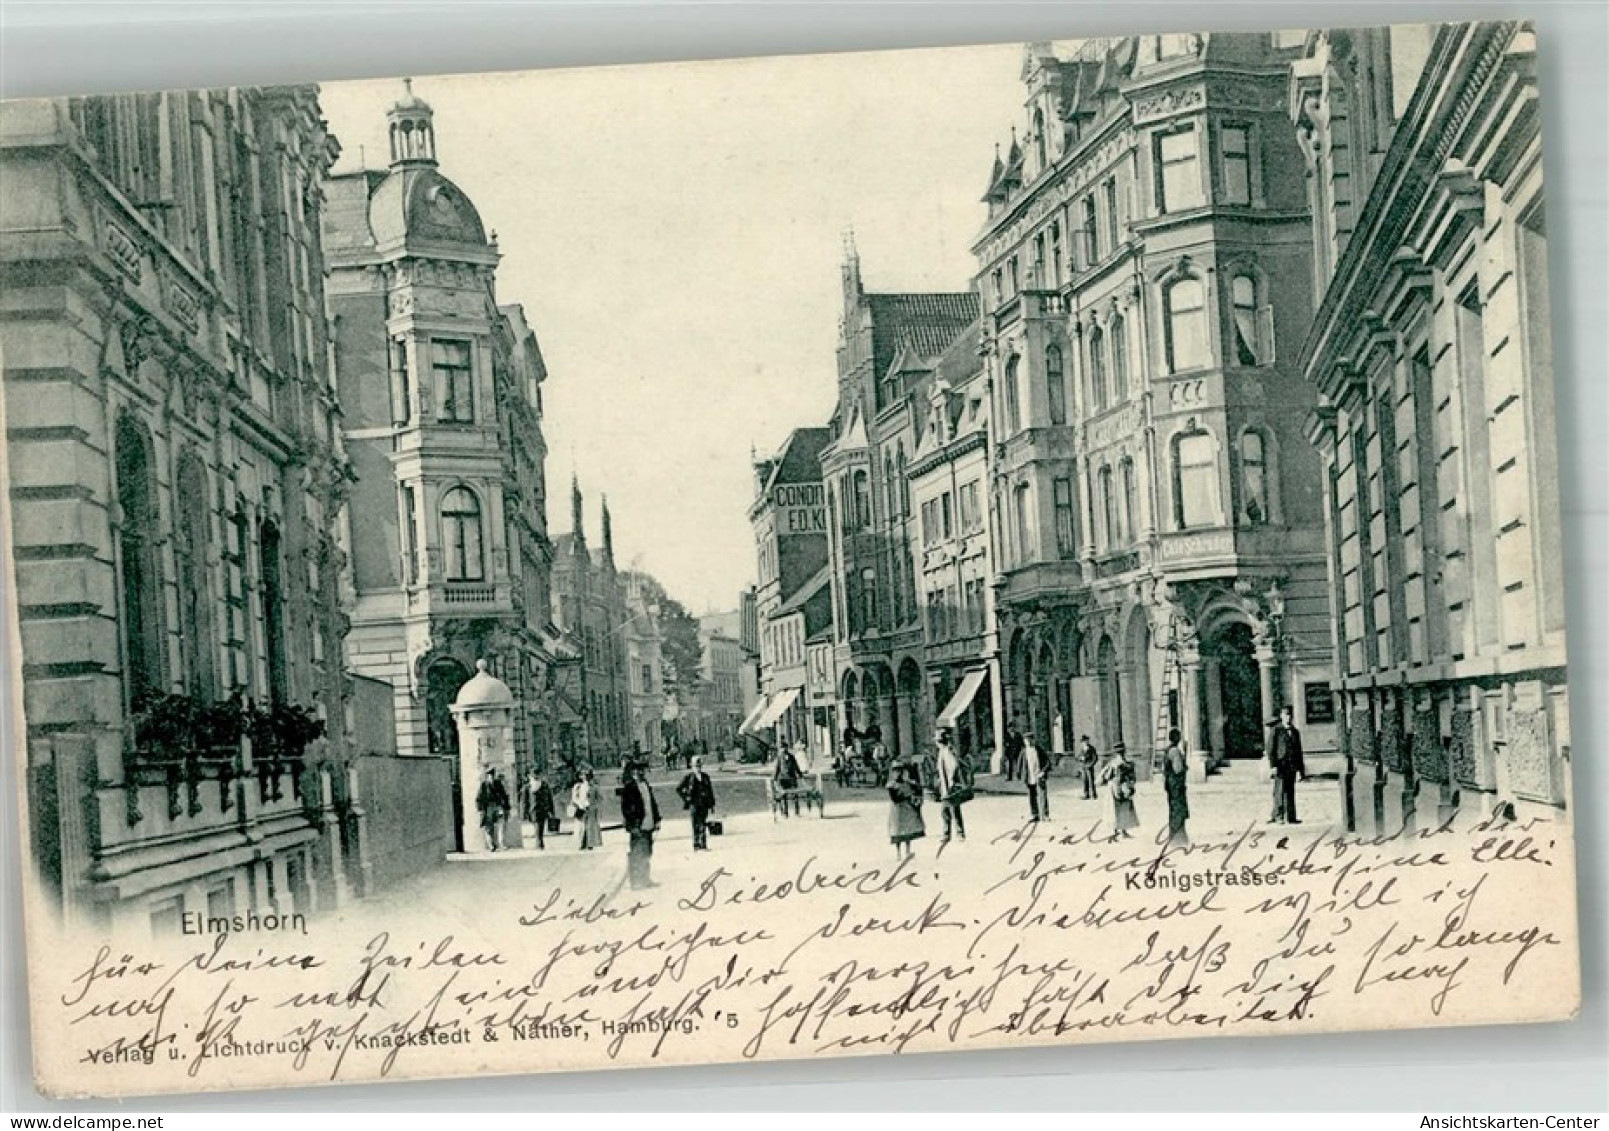 CONDI
F.D. K
Café Schrader
Elmshorn
Königstrasse.
Lieber Diedrich. Viele Grüße sendet der
deine Cousine Elli.
für deine Zeilen herzlichen Dank. Diesmal will ich
noch so nett sein und dir verzeihen, daß du so lange
nicht geschrieben hast, hoffentlich hast du dich noch
nicht überarbeitet.
Verlag u. Lichtdruck v. Knackstedt & Näther, Hamburg. 5
Ansichtskarten-Center